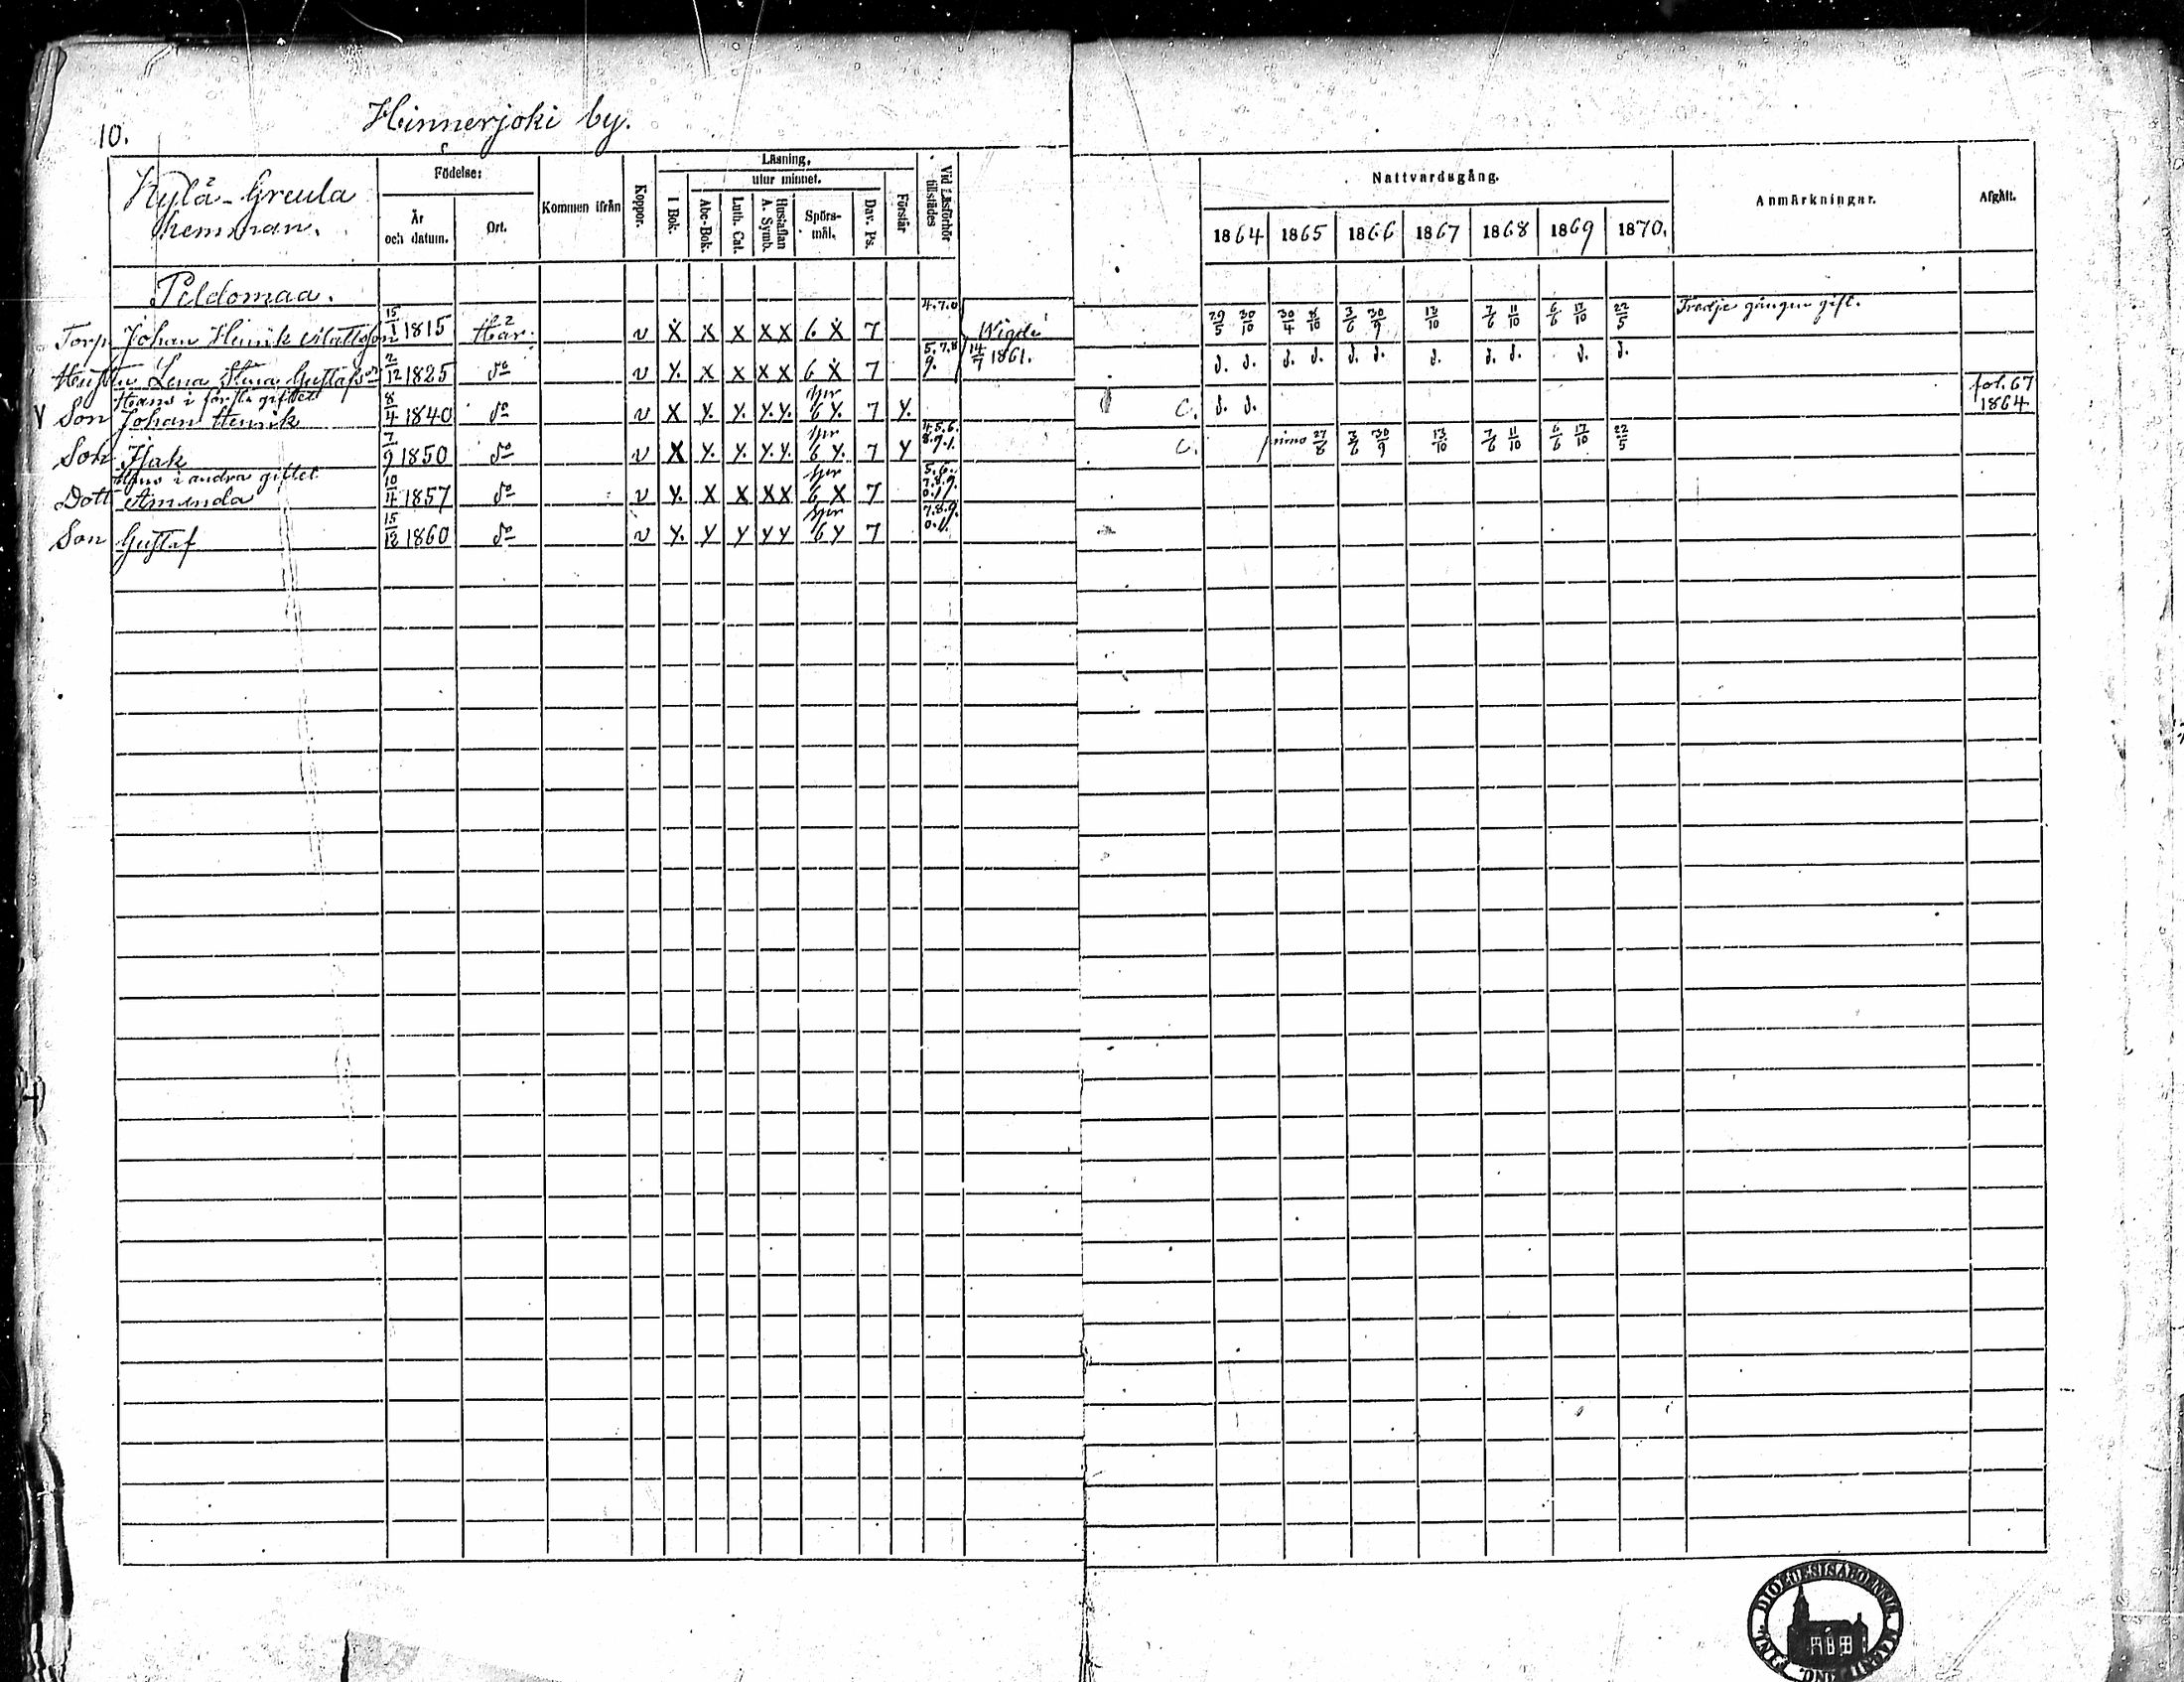 10.
Hinnerjoki by.
Kylä-Greula hemman.
Födelse:
År och datum.
Ort.
Kommen ifrån
Koppor.
Läsning,
utur minnet.
I Bok.
Abc-Bok.
Luth. Cat.
Hustaflan A. Symb.
Spörs-mål.
Dav. Ps.
Förstår
Vid Läsförhör tillstädes
Nattvardsgång.
1864 1865 1866 1867 1868 1869 1870.
Anmärkningar.
Afgått.
Peldomaa.
Torp. Johan Henrik Mattsson 15/1 1815 v X X X X X 6 X 7 4.7.0 Wigde 29/5 30/10 30/4 8/10 3/6 30/9 13/10 7/6 11/10 6/6 17/10 22/5 Tredje gången gift.
Hustru Lena Stina Gustafsdr 2/12 1825 do v Y. X X X X 6 X 7 5.7.8 9. 14/7 1861. d. d. d. d. d. d. d. d. d. d. d.
Hans i första giftet
Y Son Johan Henrik 8/4 1840 do v X Y. Y. Y. Y. 6 Y. 7 Y. C. d. d. fol. 67 1864
Son Isak 7/9 1850 do v X Y. Y. Y. Y. 6 Y. 7 Y 4.5.6. 8.9.1. C. 27/8 3/6 30/9 13/10 7/6 11/10 6/6 17/10 22/5
Hans i andra giftet
Dott Amanda 10/4 1857 do v Y. X X X X 6 X 7 5.6. 7.8.9. 0.1
Son Gustaf 15/12 1860 do v Y. Y Y Y Y 6 Y 7 7.8.9. 0.1.